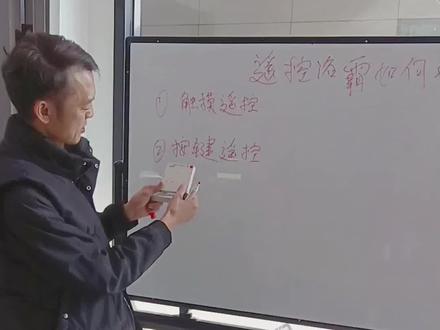 遥控浴霸如何
①触摸遥控
②按键遥控